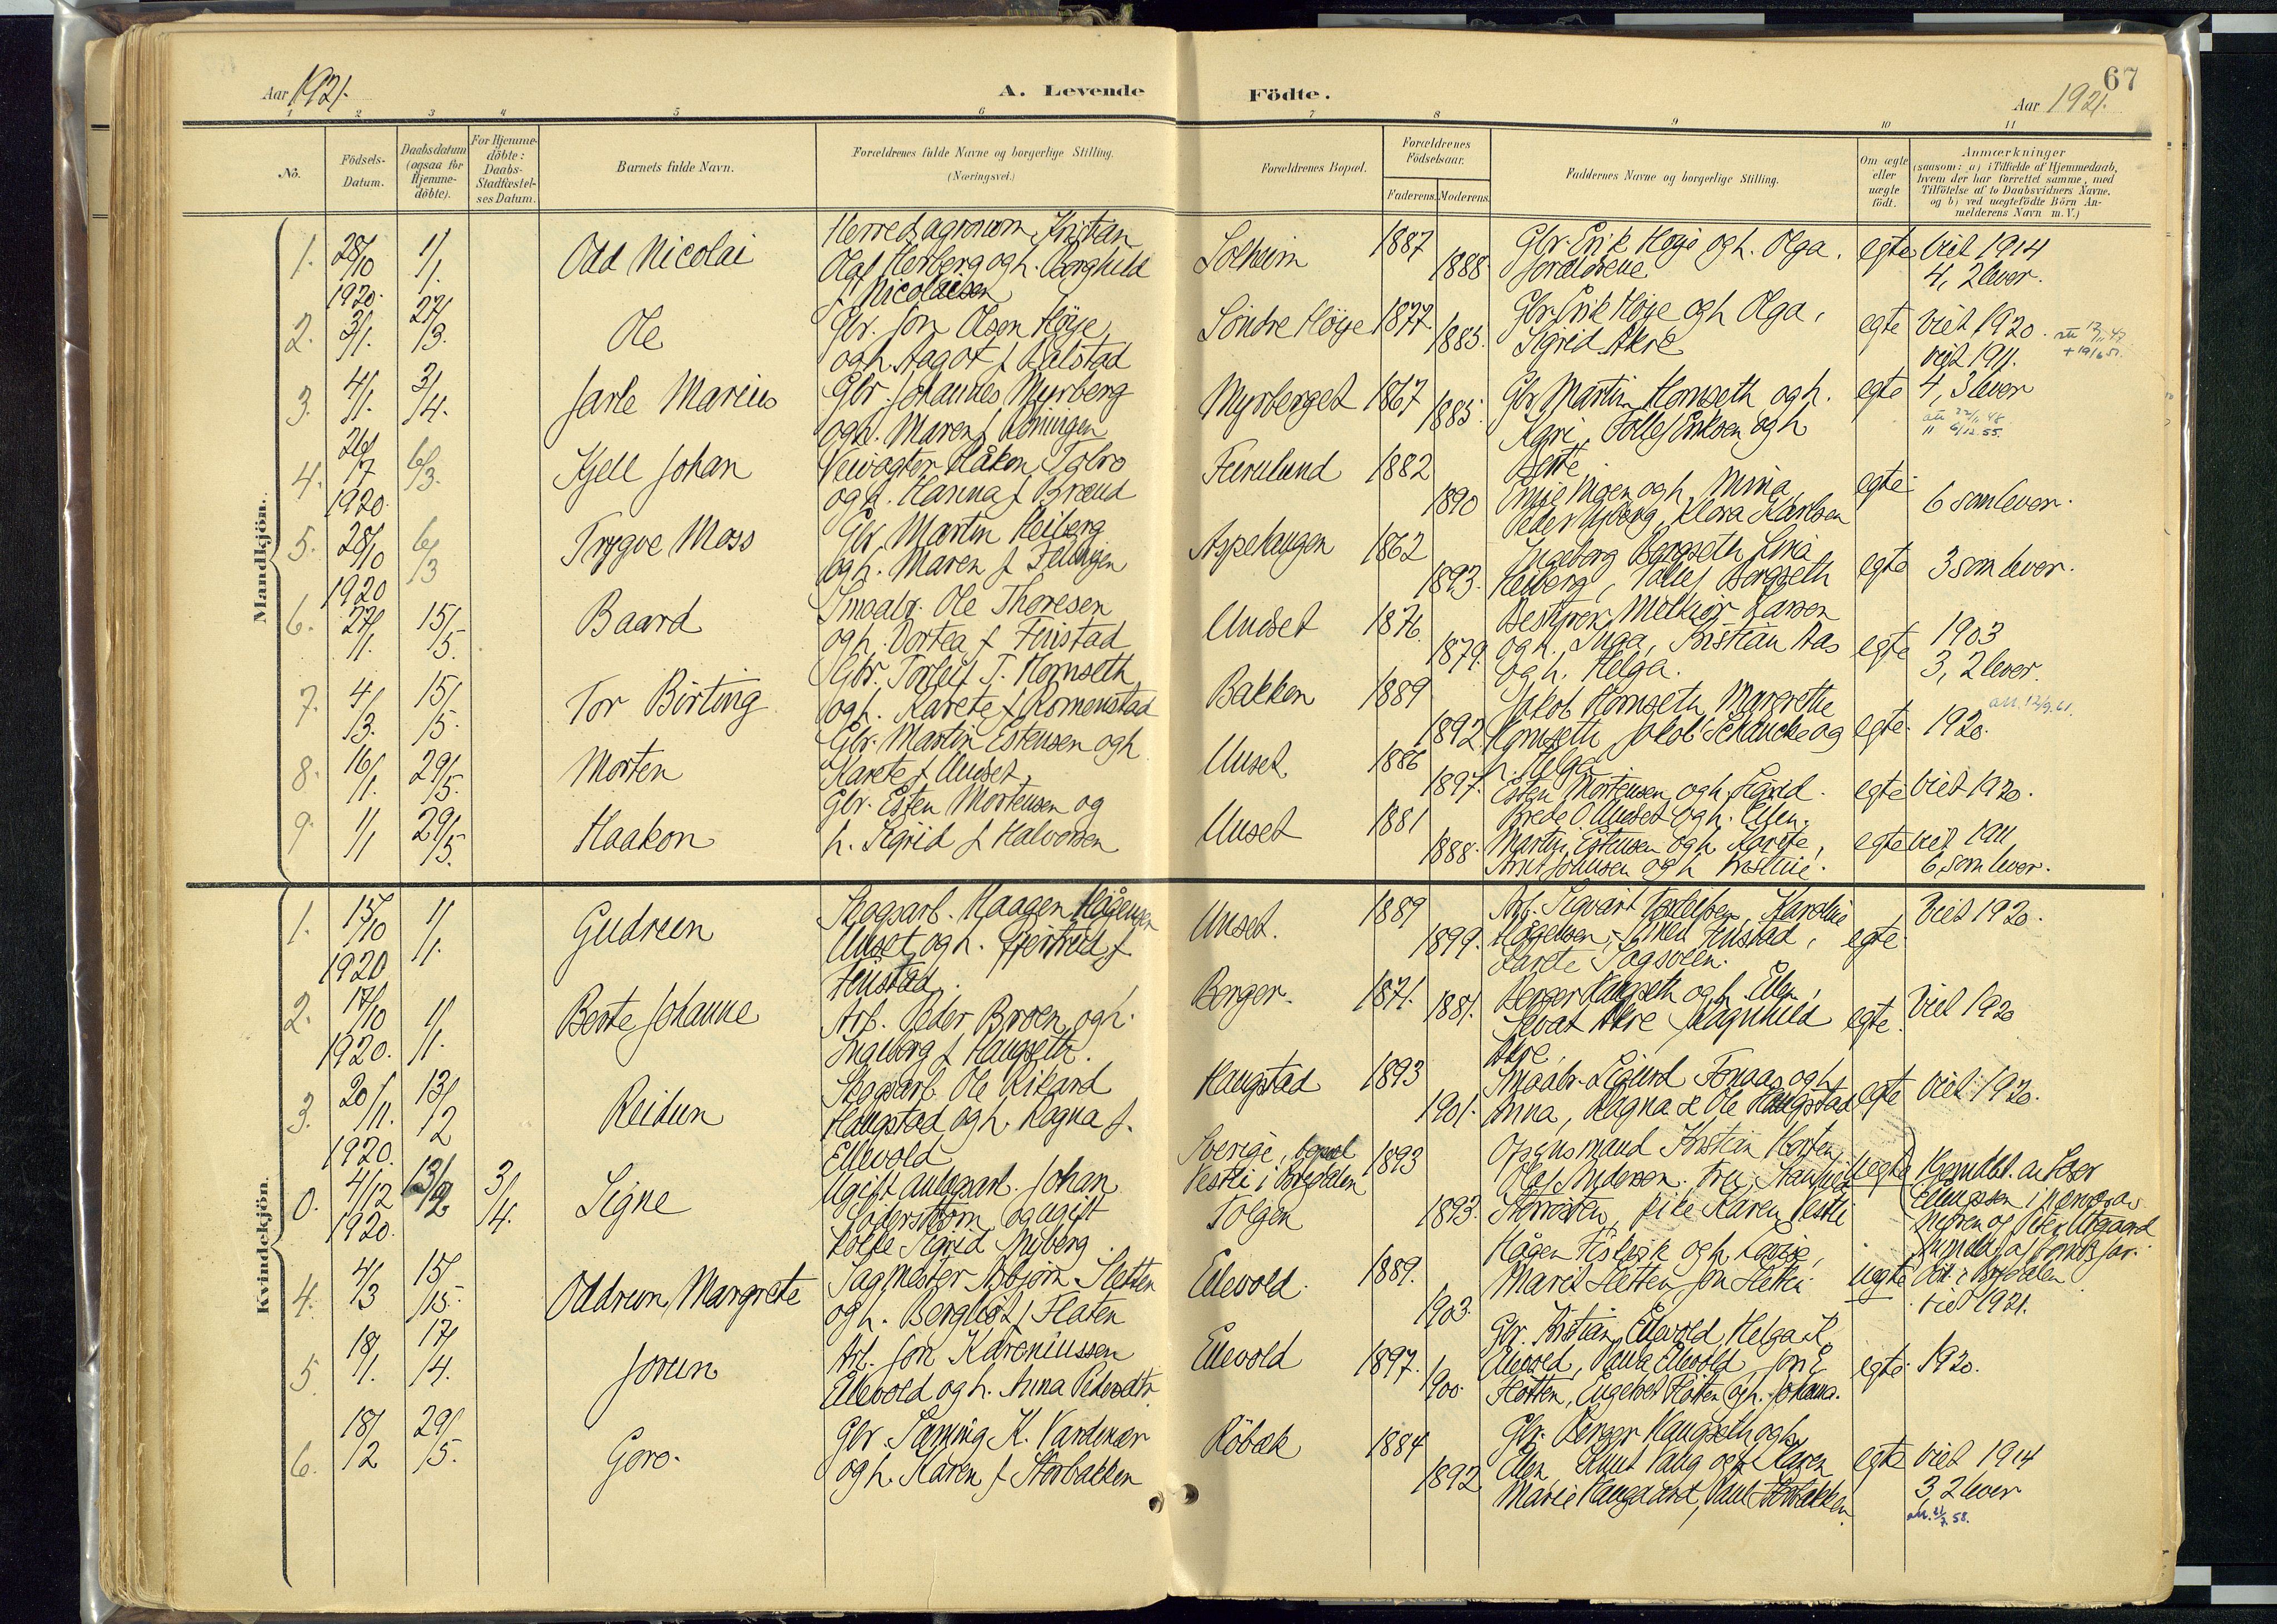 Aar 1921.
A. Levende Födte.
67
Aar 1921.
1 2 3 4 5 6 7 8 9 10 11
No.
Födsels-Datum.
Daabsdatum (ogsaa for Hjemme-döbte).
For Hjemme-döbte: Daabs-Stadfæstel-ses Datum.
Barnets fulde Navn.
Forældrenes fulde Navne og borgerlige Stilling.
(Næringsvei.)
Forældrenes Bopæl.
Forældrenes Födselsaar.
Faderens. Moderens.
Faddernes Navne og borgerlige Stilling.
Om ægte eller uægte födt.
Anmærkninger
(saasom: a) i Tilfælde af Hjemmedaab,
hvem der har forrettet samme, med
Tilföielse af to Daabsvidners Navne.
og b) ved uægtefödte Börn An-
melderens Navn m. V.)
Mandkjön.
1. 28/10 1920. 1/1. Odd Nicolai
Herredsagronom Kristian
Olaf Herberg og h. Borghild
f. Nicolaisen
Solheim 1887 1888.
Gbr. Erik Høye og h. Olga,
forældrene
egte Viet 1914
4, 2 lever.
2. 3/1. 27/3. Ole
Gbr. Jon Olsen Høye
og h. Aagot f. Kalstad
Söndre Höye 1877. 1885.
Gbr. Erik Høye og h. Olga,
Sigrid Akre
egte Viet 1920.
3. 4/1. 3/4. Jarle Marius
Gbr. Johannes Myrberg
og h. Maren f.
Myrberget 1867 1885.
Gbr Martin Homseth og h.
Kari, Tollef Eriksen og h
Berte
egte viet 1911.
4, 3 lever
4. 26/7 1920. 6/3. Kjell Johan
Veivogter Håkon Tolvo
og h. Hanna f. Brænd
Furulund 1882 1890
Moen og h. Mina
Peder Nyborg, Klara Karlsen
egte 6 som lever.
5. 28/10 1920 6/3 Trygve Moss
Gbr Martin Heiberg
og h. Maren f.
Aspehaugen 1862 1893.
Ingeborg Bergseth
Heiberg, Tollef Bergseth
egte 3 som lever.
6. 27/1. 15/5. Baard
Smaabr. Ole Thoresen
og h. Dortea f. Finstad
Unset 1876. 1879.
Bestyrer Melkior Larsen
og h. Inga, Kristian Aas
og h. Helga.
egte 1903
3, 2 lever.
7. 4/3. 15/5. Tor Birting
Gbr. Torleif T. Homseth
og h. Karete f. Romenstad
Bakken 1889 1892
Jakob Homseth Margrethe
Homseth Jakob Schincke og
h. Helga
egte. 1920.
8. 16/1. 29/5. Morten
Gbr. Martin Estensen og h
Karete f. Undset.
Unset 1886 1897.
Esten Mortensen og h. Sigrid.
Brede O Undset og h. Ellen.
egte Viet 1920.
9. 1/1 29/5. Haakon
Gbr. Esten Mortensen og
h. Sigrid f. Halvorsen
Unset 1881 1888.
Martin Estensen og h. Karete,
Johnsen og h. Kristine.
egte viet 1911
6 som lever.
Kvindekjön.
1. 15/10 1920 1/1. Gudrun
Skogsarb. Haagen Hågensen
Unset og h. Gjertrud f.
Finstad.
Unset. 1889 1899.
Arb. Sigvart Torleifsen, Karoline
Hågensen, Simen Finstad,
Karete Sagsveen.
egte. Viet 1920.
2. 17/10 1920. 1/1. Berte Johanne
Arb. Peder Broen og h.
Ingeborg f. Haugseth.
Berger. 1871. 1881.
Berger Haugseth og h. Ellen,
Sivat Akre Ragnhild
Akre
egte. Viet 1920
3. 20/11. 1920. 13/2 Reidun
Skogsarb. Ole Rikard
Haugstad og h. Ragna f.
Ellevold
Haugstad 1893 1901.
Smaabr. Sigurd Fonaas og h
Anna, Ragna & Ole Haugstad
egte Viet 1920.
0. 4/12 1920. 13/12 3/4. Signe
Ugift anlegsarb. Johan
Söderström og ugift
Sigrid Nyberg.
Sverige, bopæl
Vestli i Brydalen
Tolgen
1893 1893.
Opsynsmand Kristian Horten,
Olaf Andersen.
pike Karen Vestli
uegte
4. 4/3 15/5. Oddrun Margrete
Sagmester Asbjørn Sletten
og h. Bergliot f. Flaten
Ellevold. 1889. 1903.
Hågen Fiskvik og h. Lovise,
Marit Sletten, Jon Sletten
uegte viet 1921.
5. 18/1. 17/4. Jorun
Arb. Jon Kareniussen
Ellevold og h. Anna Pedersdtr.
Ellevold 1897. 1900.
Gbr. Kristian Ellevold, Helga K.
Ellevold, Paula Ellevold Jon E
Flötten, Engebret Flötten og h. Johanna.
egte. 1920.
6. 18/2 29/5. Goro.
Gbr. Sæming K. Vardenær
og h. Karen f. Storbakken
Röbæk 1884 1892
Gbr. Berger Haugseth og h.
Ellen, Knut Vang og h. Karen
Marie Haugaard, Paul Storbakken.
egte viet 1914
3 2 lever